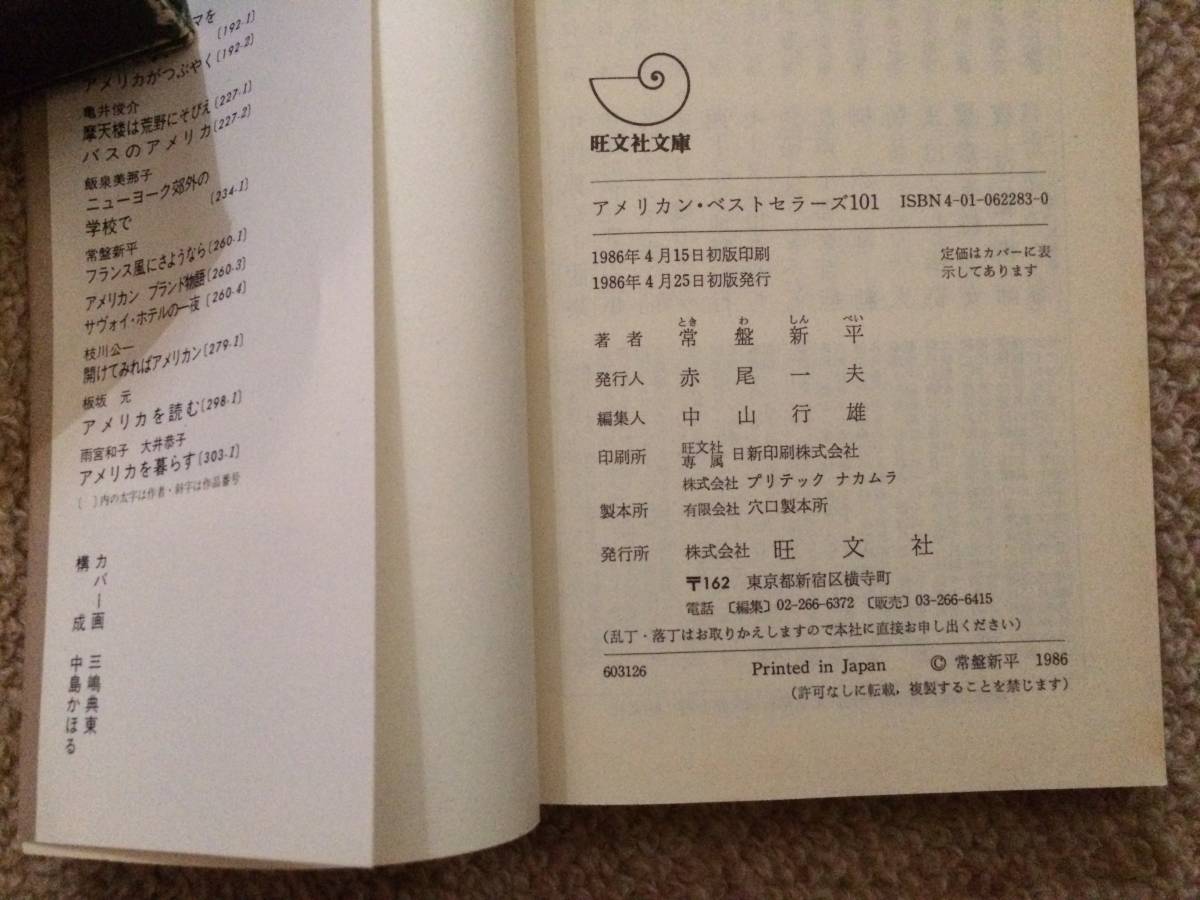 マを
[192-1]
アメリカがつぶやく[192-2]
亀井俊介
摩天楼は荒野にそびえ[227-1]
バスのアメリカ[227-2]
飯泉美那子
ニューヨーク郊外の
学校で [234-1]
常盤新平
フランス風にさようなら[260-1]
アメリカン ブランド物語[260-3]
サヴォイ・ホテルの一夜[260-4]
枝川公一
開けてみればアメリカン[279-1]
板坂 元
アメリカを読む[298-1]
雨宮和子 大井恭子
アメリカを暮らす[303-1]
[ ]内の太字は作者・斜字は作品番号
カバー画 三嶋典東
構成 中島かほる
旺文社文庫
アメリカン・ベストセラーズ101 ISBN4-01-062283-0
1986年4月15日初版印刷
1986年4月25日初版発行
定価はカバーに表
示してあります
とき わ しん ぺい
著者 常盤新平
発行人 赤尾一夫
編集人 中山行雄
印刷所 旺文社専属 日新印刷株式会社
株式会社 プリテック ナカムラ
製本所 有限会社 穴口製本所
発行所 株式会社 旺文社
〒162 東京都新宿区横寺町
電話 〔編集〕02-266-6372 〔販売〕03-266-6415
(乱丁・落丁はお取りかえしますので本社に直接お申し出ください)
603126 Printed in Japan © 常盤新平 1986
(許可なしに転載，複製することを禁じます)